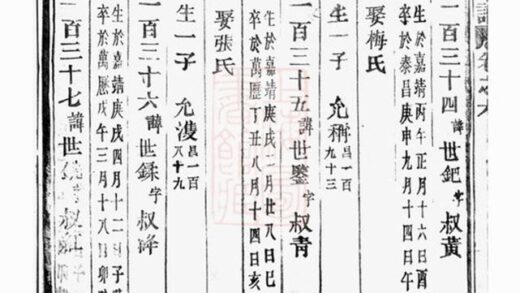 譜卷之六
一百三十四 諱世鈀字叔黃
生於嘉靖丙午正月十六日酉
卒於泰昌庚申九月十四日午
娶梅氏
生一子 允稱昌一百九十三
一百三十五諱世鑒字叔青
生於嘉靖庚戌二月廿八日巳
卒於萬歷丁丑八月十四日亥
娶張氏
生一子 允㳶昌一百八十九
一百三十六諱世鍒字叔
生於嘉靖庚戌四月十二日子
卒於萬歷戊午三月十八日卯
百三十七諱世 叔